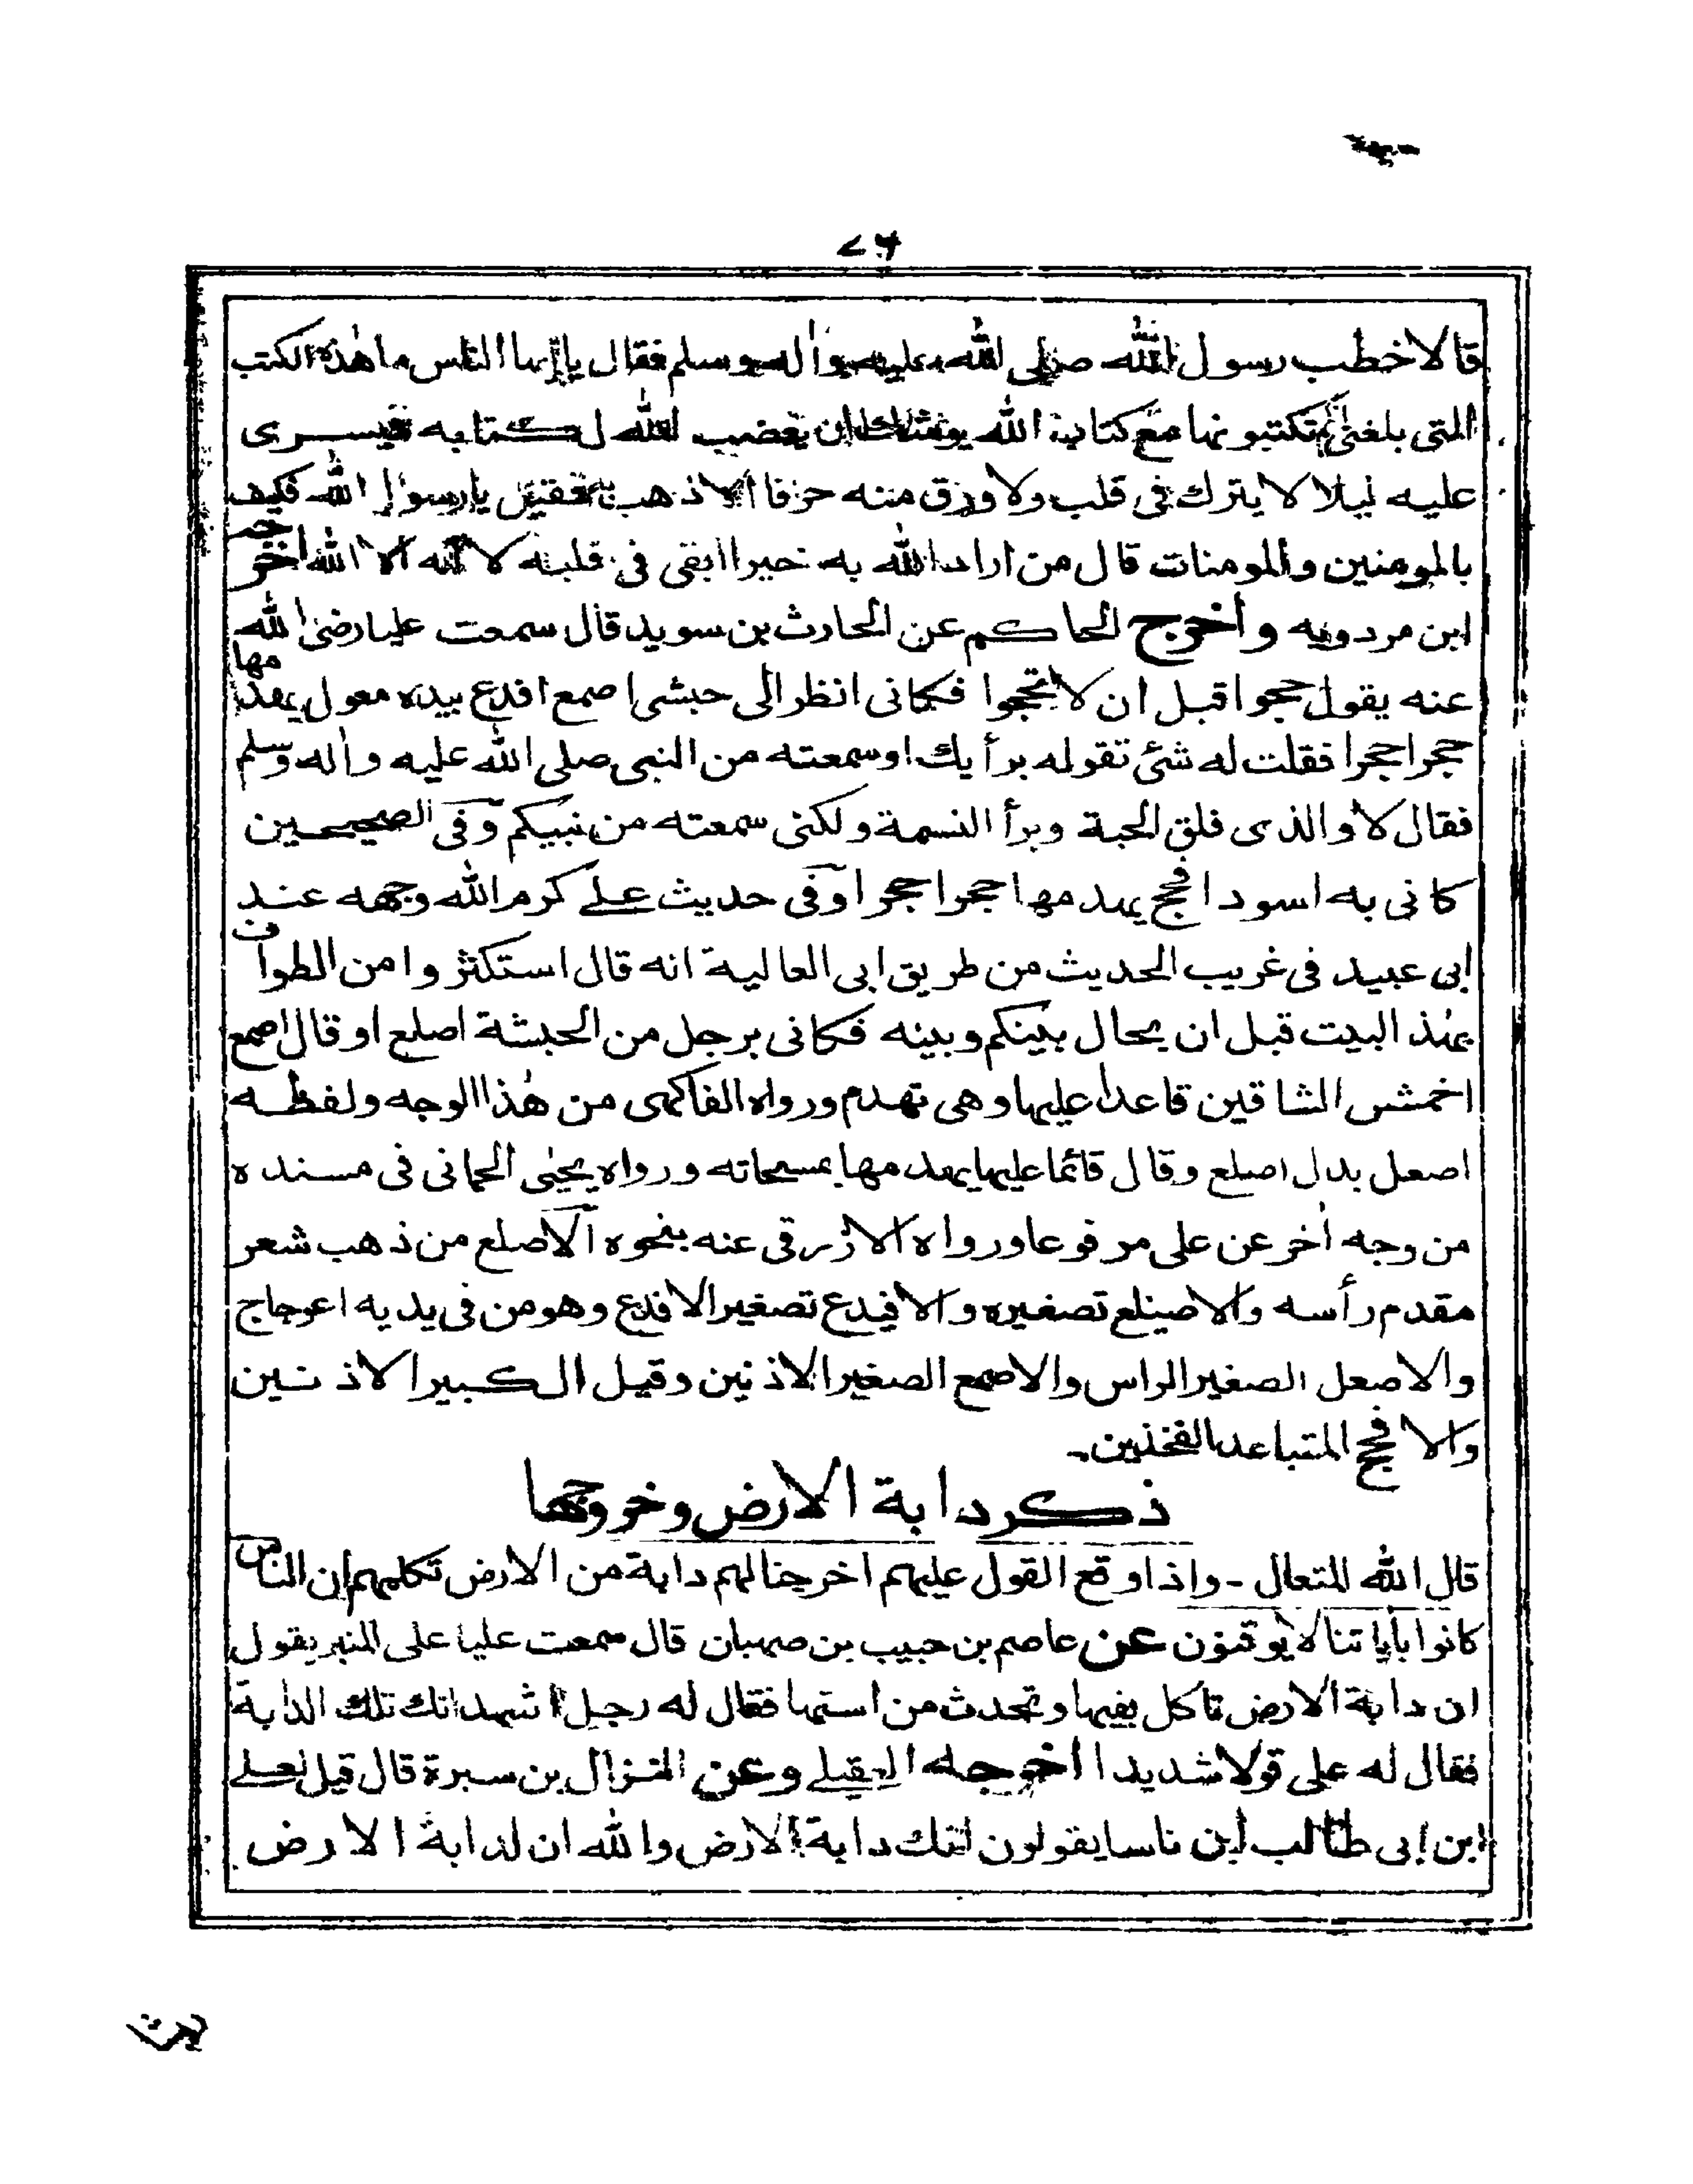 قالا خطب رسول الله صلى الله عليه واٰله وسلم فقال يا ايها الناس ما هٰذه الكتب
التى بلغنى انكم تكتبونها مع كتاب الله يوشك ان يغضب الله لكتابه فيسرى
عليه ليلا لا يترك فى قلب ولا ورق منه حرفا الا ذهب به فقيل يا رسول الله فكيف
بالمومنين والمومنات قال من اراد الله به خيرا ابقى فى قلبه لا اله الا الله اخرجه
ابن مردويه واخرج الحاكم عن الحارث بن سويد قال سمعت عليا رضى الله
عنه يقول حجوا قبل ان لا تحجوا فكانى انظر الى حبشى اصمع افدع بيده معول يهدمها
حجرا حجرا فقلت له شئ تقوله برأيك اوسمعته من النبى صلى الله عليه واٰله وسلم
فقال لا والذى فلق الحبة وبرأ النسمة ولكنى سمعته من نبيكم وفى الصحيحين
كانى به اسود افحج يهدمها حجرا حجرا وفى حديث على كرم الله وجهه عند
ابى عبيد فى غريب الحديث من طريق ابى العالية انه قال استكثروا من الطواف
بهٰذ البيت قبل ان يحال بينكم وبينه فكانى برجل من الحبشة اصلع او قال اصمع
اخمش الشاقين قاعدا عليها وهى تهدم ورواه الفاكهى من هٰذا الوجه ولفظه
اصعل بدل اصلع وقال قائما عليها يهدمها بمسحاته ورواه يحيىٰ الحمانى فى مسنده
من وجه اٰخر عن على مرفوعا ورواه الازرقى عنه بنحوه الاصلع من ذهب شعر
مقدم رأسه والاصيلع تصغيره والافيدع تصغير الافدع وهو من فى يديه اعوجاج
والاصعل الصغير الراس والاصمع الصغير الاذنين وقيل الكبير الاذنين
والافحج المتباعد الفخذين-
ذكر دابة الارض وخروجها
قال الله المتعال - واذا وقع القول عليهم اخرجنا لهم دابة من الارض تكلمهم ان الناس
كانوا باٰياتنا لا يوقنون عن عاصم بن حبيب بن صهبان قال سمعت عليا على المنبر يقول
ان دابة الارض تاكل بفيها وتحدث من استها فقال له رجل اشهد انك تلك الدابة
فقال له على قولا شديدا اخرجه العقيلى وعن النزال بن سبرة قال قيل لعلى
ابن ابى طالب ان ناسا يقولون انك دابة الارض والله ان لدابة الارض